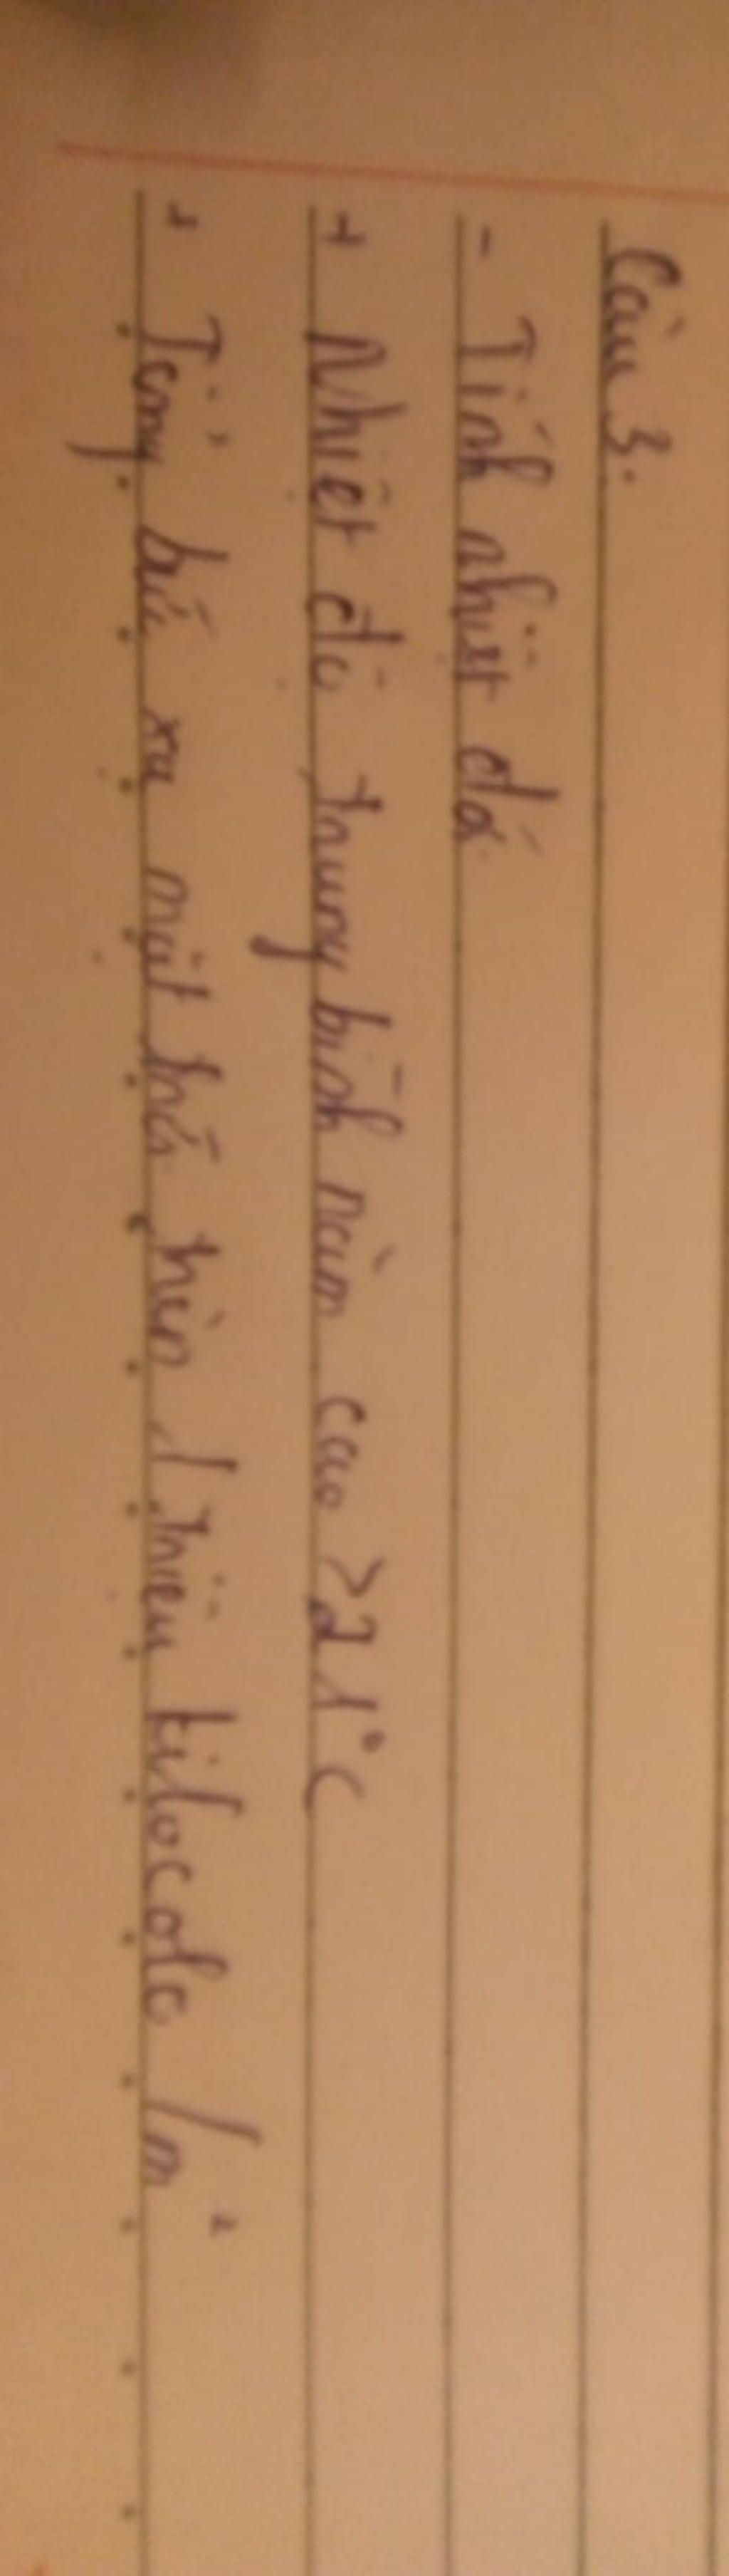 Câu 3.
- Tính nhiệt đới
+ Nhiệt độ trung bình năm cao >21°C
+ Tổng bức xạ mặt trời trên 1 triệu kilocalo /m²